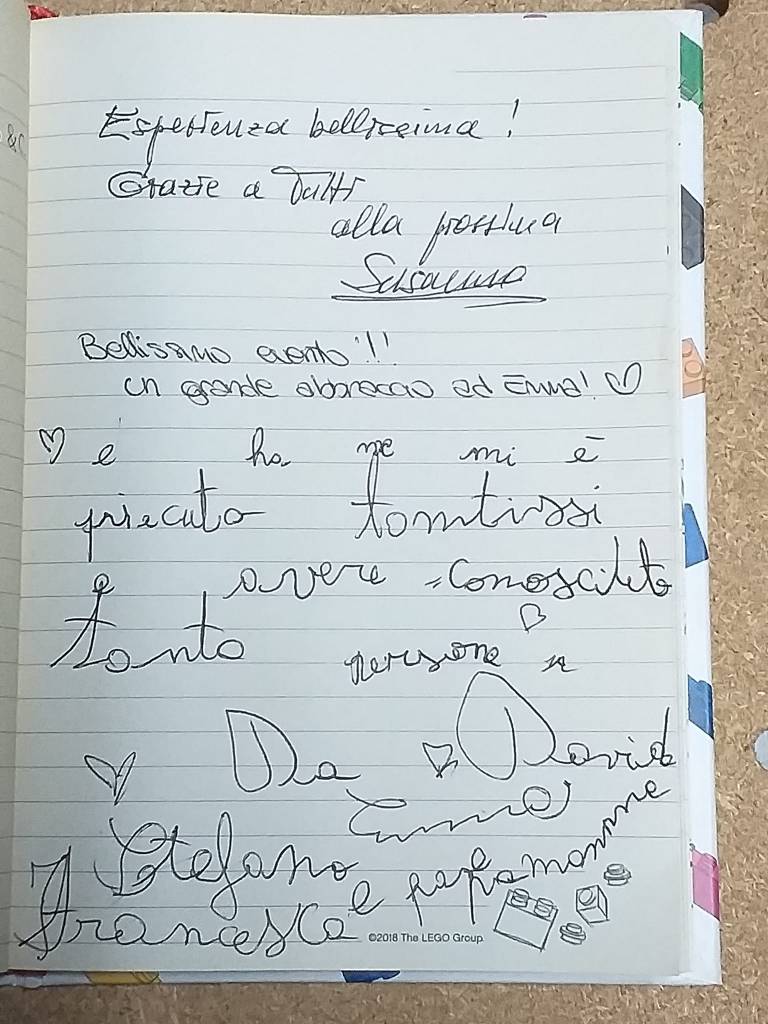 Esperienza bellissima!
Grazie a Tutti
alla prossima
Susanna
Bellissimo evento!!!
un grande abbraccio ad Emma!
e ha me mi è
priecuto tomtissi
avere conosciuto
tanto persone
Da Davide
Emma
Stefano
e papà mamma
Francesca
©2018 The LEGO Group.